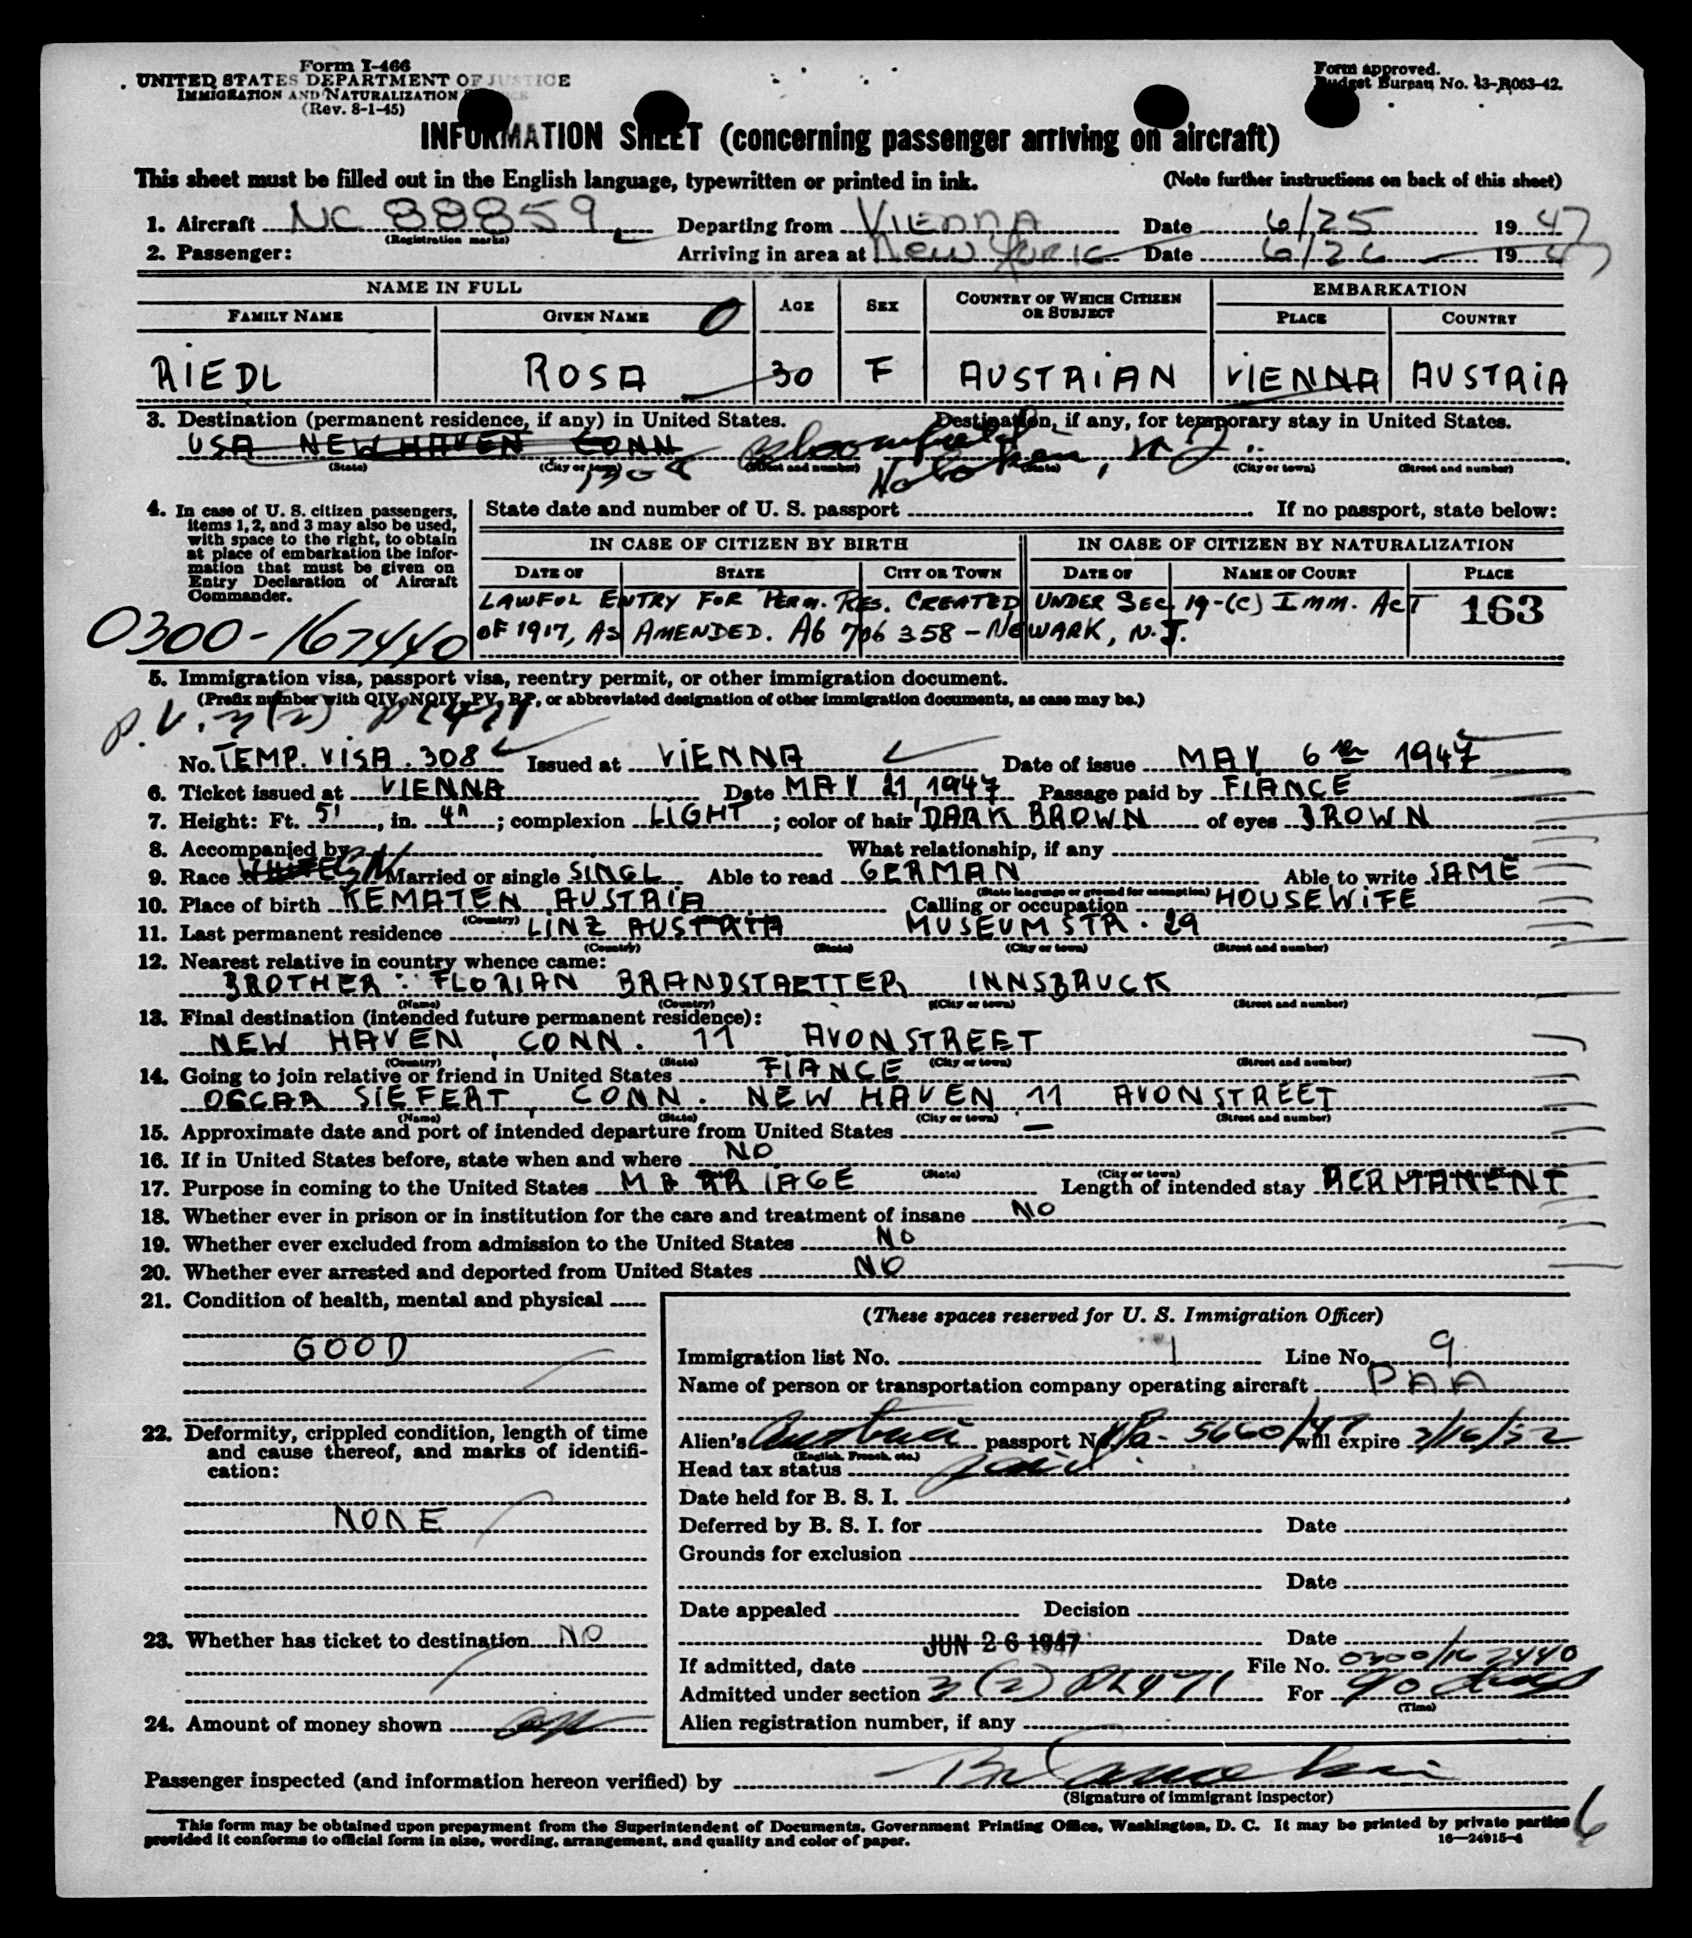 Form I-466
UNITED STATES DEPARTMENT OF JUSTICE
IMMIGRATION AND NATURALIZATION SERVICE
(Rev. 8-1-45)
Form approved.
Budget Bureau No. 43-R063-42.
INFORMATION SHEET (concerning passenger arriving on aircraft)
This sheet must be filled out in the English language, typewritten or printed in ink. (Note further instructions on back of this sheet)
1. Aircraft NC 88859 Departing from VIENNA Date 6/25 1947
(Registration marks)
2. Passenger: Arriving in area at NEW YORK Date 6/26 1947
NAME IN FULL AGE SEX COUNTRY OF WHICH CITIZEN OR SUBJECT EMBARKATION
FAMILY NAME GIVEN NAME 0 PLACE COUNTRY
RIEDL ROSA 30 F AUSTRIAN VIENNA AUSTRIA
3. Destination (permanent residence, if any) in United States. Destination, if any, for temporary stay in United States.
USA NEW HAVEN CONN Bloomfield
(State) (City or town) (Street and number) (State) (City or town) (Street and number)
1308 Hoboken, N.J.
4. In case of U. S. citizen passengers, items 1, 2, and 3 may also be used, with space to the right, to obtain at place of embarkation the information that must be given on Entry Declaration of Aircraft Commander.
State date and number of U. S. passport If no passport, state below:
IN CASE OF CITIZEN BY BIRTH IN CASE OF CITIZEN BY NATURALIZATION
DATE OF STATE CITY OR TOWN DATE OF NAME OF COURT PLACE
LAWFUL ENTRY FOR PERM. RES. CREATED UNDER SEC. 19-(C) IMM. ACT 163
OF 1917, AS AMENDED. A6 706 358 - NEWARK, N.J.
0300-167440
5. Immigration visa, passport visa, reentry permit, or other immigration document.
(Prefix number with QIV, NQIV, PV, RP, or abbreviated designation of other immigration documents, as case may be.)
P.V. 3(2) PL 471
No. TEMP. VISA. 308 Issued at VIENNA Date of issue MAY 6th 1947
6. Ticket issued at VIENNA Date MAY 21, 1947 Passage paid by FIANCE
7. Height: Ft. 5', in. 4"; complexion LIGHT; color of hair DARK BROWN of eyes BROWN
8. Accompanied by What relationship, if any
9. Race Married or single SINGL Able to read GERMAN Able to write SAME
(State language or ground for exemption)
10. Place of birth KEMATEN AUSTRIA Calling or occupation HOUSEWIFE
(Country)
11. Last permanent residence LINZ AUSTRIA MUSEUMSTR. 29
(Country) (State) (City or town) (Street and number)
12. Nearest relative in country whence came:
BROTHER: FLORIAN BRANDSTAETTER, INNSBRUCK
(Name) (Country) (City or town) (Street and number)
13. Final destination (intended future permanent residence):
NEW HAVEN, CONN. 11 AVONSTREET
(Country) (State) (City or town) (Street and number)
14. Going to join relative or friend in United States FIANCE
OSCAR SIEFERT, CONN. NEW HAVEN 11 AVONSTREET
(Name) (State) (City or town) (Street and number)
15. Approximate date and port of intended departure from United States —
16. If in United States before, state when and where NO
(State) (City or town)
17. Purpose in coming to the United States MARRIAGE Length of intended stay PERMANENT
18. Whether ever in prison or in institution for the care and treatment of insane NO
19. Whether ever excluded from admission to the United States NO
20. Whether ever arrested and deported from United States NO
21. Condition of health, mental and physical
GOOD
22. Deformity, crippled condition, length of time and cause thereof, and marks of identification:
NONE
23. Whether has ticket to destination NO
24. Amount of money shown
(These spaces reserved for U. S. Immigration Officer)
Immigration list No. 1 Line No. 9
Name of person or transportation company operating aircraft PAA
Alien's Austrian passport No. 5660/47 will expire 2/16/52
(English, French, etc.)
Head tax status paid
Date held for B. S. I.
Deferred by B. S. I. for Date
Grounds for exclusion
Date
Date appealed Decision
Date
If admitted, date JUN 26 1947 File No. 0300/167440
Admitted under section 3(2) PL 471 For 90 days
(Time)
Alien registration number, if any
Passenger inspected (and information hereon verified) by
(Signature of immigrant inspector)
This form may be obtained upon prepayment from the Superintendent of Documents, Government Printing Office, Washington, D. C. It may be printed by private parties
provided it conforms to official form in size, wording, arrangement, and quality and color of paper.
16—24915-4
6